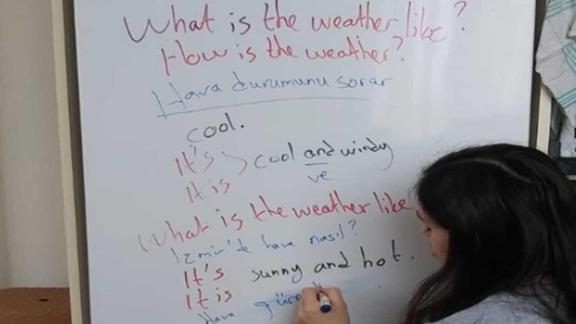 What is the weather like?
How is the weather?
Hava durumunu sorar
cool.
It's
It is
cool and windy
ve
What is the weather like
İzmir'de hava nasıl?
It's sunny and hot.
It is
Hava